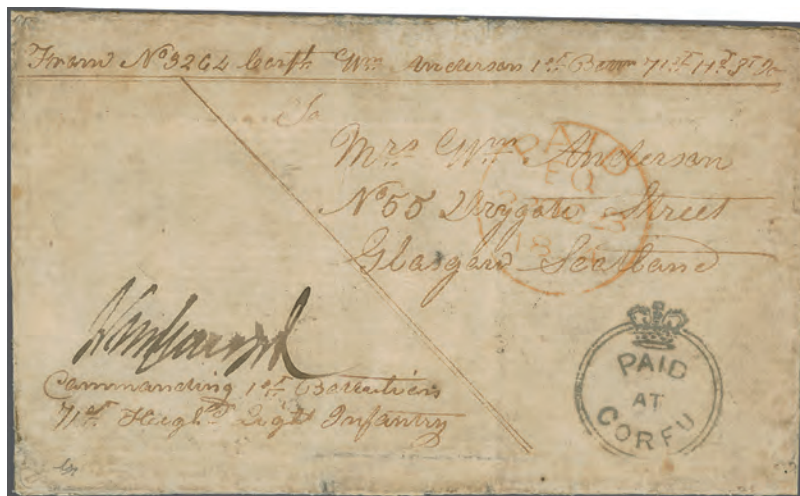 From No 3264 Corpl Wm Anderson 1st Battn 71st Hd Lt
To
Mrs Wm Anderson
No 55 Drygate Street
Glasgow Scotland
PAID
Commanding 1st Battalion
71st Highd Light Infantry
PAID
AT
CORFU